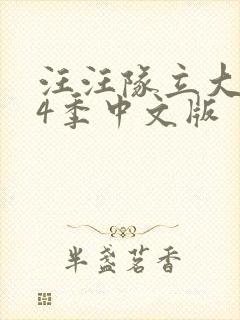 汪汪队立大
4季中文版
半盏茗香